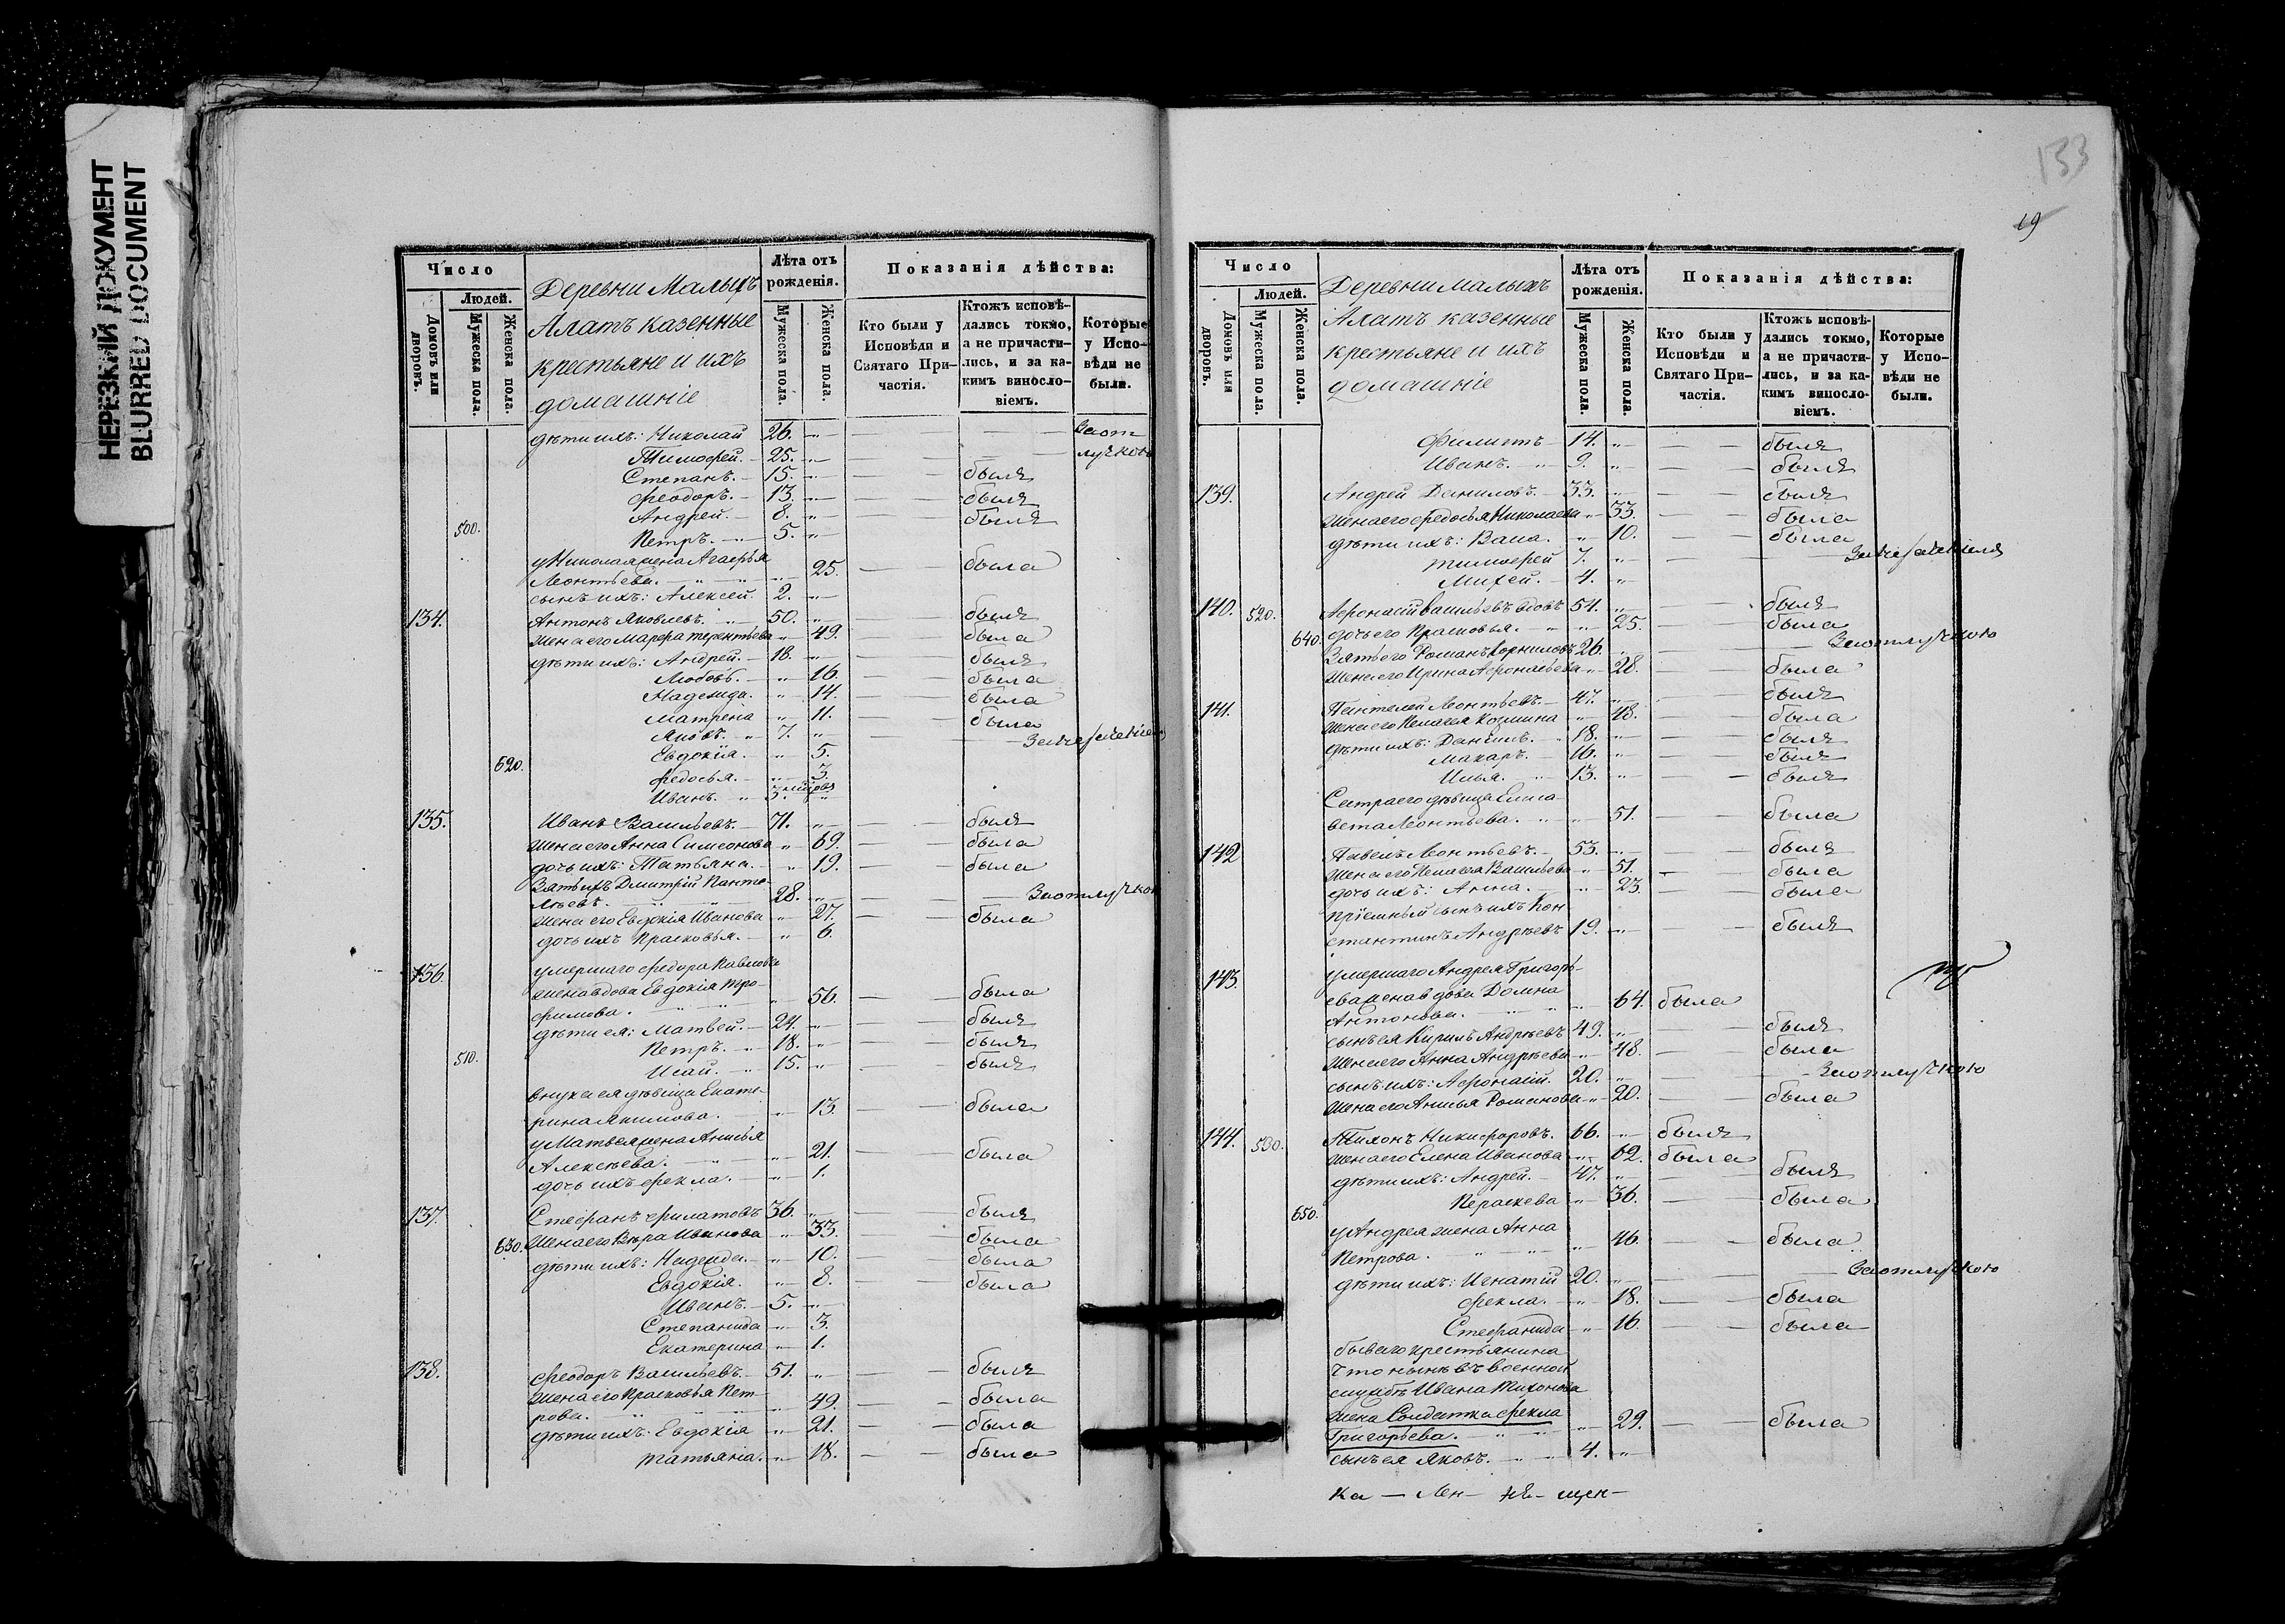 НЕРЕЗКИЙ ДОКУМЕНТ
BLURRED DOCUMENT
Число
Людей.
Домовъ или дворовъ.
Мужеска пола.
Женска пола.
Деревни Малыхъ
Алатъ казенные
крестьяне и ихъ
домашніе
Лѣта отъ рожденія.
Мужеска пола.
Женска пола.
Показанія дѣйства:
Кто были у Исповѣди и Святаго При-
частія.
Ктожъ исповѣ-
дались токмо,
а не причасти-
лись, и за ка-
кимъ винось-
віемъ.
Которые
у Испо-
вѣди не
были.
дѣти ихъ: Николай 26. заот
Тимофей. 25. лучкою
Степанъ. 15. былъ
Феодоръ. 13. былъ
Андрей. 8. былъ
500. Петръ. 5.
у Николая жена Агафья
Леонтьева. 25. была
сынъ ихъ: Алексей. 2.
134. Антонъ Яковлевъ. 50. былъ
жена его Марфа Терентьева 49. была
дѣти ихъ: Андрей. 18. былъ
Любовь. 16. была
Надежда. 14. была
Матрена 11. была
Яковъ. 7.
620. Евдокія. 5.
Федосья. 3.
Иванъ. 3.
135. Иванъ Васильевъ. 71. былъ
жена его Анна Симеонова 69. была
дочь ихъ: Татьяна. 19. была
Зять ихъ Дмитрій Панте-
лѣевъ. 28. Заотлучкою
жена его Евдокія Иванова 27. была
дочь ихъ Прасковья. 6.
136. умершаго Федора Павлова
жена вдова Евдокія Тро-
фимова. 56. была
дѣти ея: Матвей. 24. былъ
Петръ. 18. былъ
510. Исай. 15. былъ
внука ея дѣвица Екате-
рина Якимова. 13. была
у Матвея жена Анисья
Алексѣева. 21. была
дочь ихъ Фекла. 1.
137. Стефанъ Филатовъ 36. былъ
630. жена его Вѣра Иванова 33. была
дѣти ихъ: Надежда. 10. была
Евдокія. 8. была
Иванъ. 5.
Степанида 3.
Екатерина 1.
138. Феодоръ Васильевъ. 51. былъ
жена его Прасковья Пет-
рова. 49. была
дѣти ихъ: Евдокія 21. была
Татьяна. 18. была
133
19
Число
Людей.
Домовъ или дворовъ.
Мужеска пола.
Женска пола.
Деревни Малыхъ
Алатъ казенные
крестьяне и ихъ
домашніе
Лѣта отъ рожденія.
Мужеска пола.
Женска пола.
Показанія дѣйства:
Кто были у
Исповѣди и
Святаго При-
частія.
Ктожъ исповѣ-
дались токмо,
а не причасти-
лись, и за ка-
кимъ винось-
віемъ.
Которые
у Испо-
вѣди не
были.
Филиппъ 14. былъ
Иванъ. 9. былъ
139. Андрей Даниловъ. 33. былъ
жена его Федосья Николаева 33. была
дѣти ихъ: Васса. 10. была
Тимофей 7.
Михей. 4.
140. 520. Афонасій Васильевъ вдовъ 54. былъ
дочь его Прасковья. 25. была
640. Зять его Романъ Корниловъ 26. Заотлучкою
жена его Ирина Афонасьева 28. была
141. Пантелей Леонтьевъ. 47. былъ
жена его Пелагея Козмина 48. была
дѣти ихъ: Даниилъ. 18. былъ
Макаръ. 16. былъ
Илья. 13. былъ
Сестра его дѣвица Елиса-
вета Леонтьева. 51. была
142 Павелъ Леонтьевъ. 53. былъ
жена его Пелагея Васильева 51. была
дочь ихъ: Анна. 23. была
Пріемный сынъ ихъ Кон
стантинъ Андрѣевъ 19. былъ
143. умершаго Андрея Григорь-
ева жена вдова Домна
Антонова. 64. была
сынъ ея Кирилъ Андрѣевъ 49. былъ
жена его Анна Андрѣева 48. была
сынъ ихъ: Афонасій. 20. Заотлучкою
жена его Анисья Романова 20. была
144. 530. Тихонъ Никифоровъ. 66. былъ
жена его Елена Иванова 62. была
дѣти ихъ: Андрей. 47. былъ
650. Параскева 36. была
у Андрея жена Анна
Петрова. 46. была
дѣти ихъ: Игнатій 20. Заотлучкою
Фекла. 18. была
Стефанида 16. была
бывшаго крестьянина
что нынѣ въ военной
службѣ Ивана Тихонова
жена Солдатка Фекла
Григорьева. 29. была
сынъ ея Яковъ. 4.